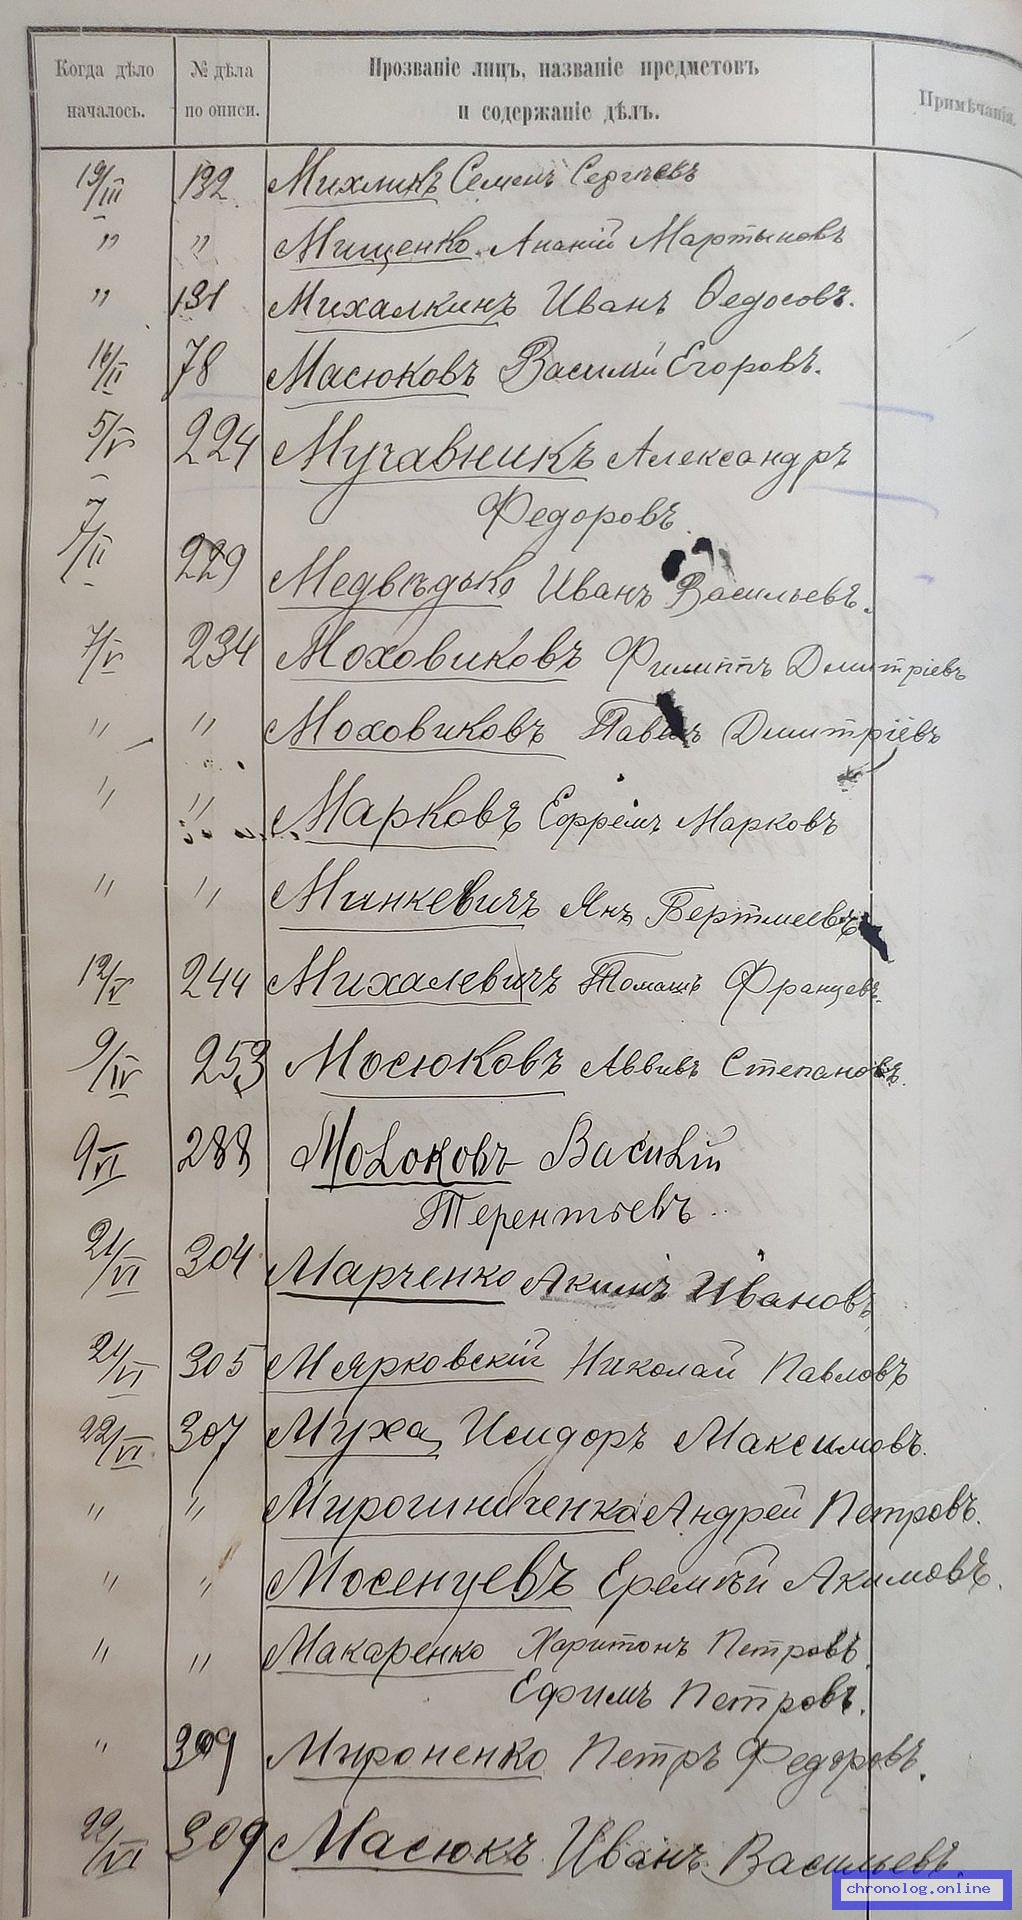 Когда дѣло началось. № дѣла по описи. Прозваніе лицъ, названіе предметовъ и содержаніе дѣлъ. Примѣчанія.
19/III 132 Михликъ Семенъ Сергѣевъ
" " Мищенко Ананій Мартыновъ
" 131 Михалкинъ Иванъ Ѳедосовъ.
16/II 78 Масюковъ Василій Егоровъ.
5/V 224 Мучавникъ Александръ
Федоровъ
7/II 229 Медвѣдько Иванъ Васильевъ.
7/V 234 Моховиковъ Филиппъ Дмитріевъ
" " Моховиковъ Павелъ Дмитріевъ
" " Марковъ Ефремъ Марковъ
" " Минкевичъ Янъ
12/V 244 Михалевичъ Томашъ Францевъ.
9/IV 253 Мосюковъ Аввивъ Степановъ.
9/VI 288 Молоковъ Василій
Терентьевъ
21/VI 304 Марченко Акимъ Ивановъ
21/VI 305 Мярковскій Николай Павловъ
22/VI 307 Муха Исидоръ Максимовъ.
" " Мирошниченко Андрей Петровъ.
" " Мосенцевъ Еремѣй Акимовъ.
" " Макаренко Харитонъ Петровъ.
Ефимъ Петровъ.
" 309 Мироненко Петръ Федоровъ.
22/VI 309 Масюкъ Иванъ Васильевъ.
chronolog.online